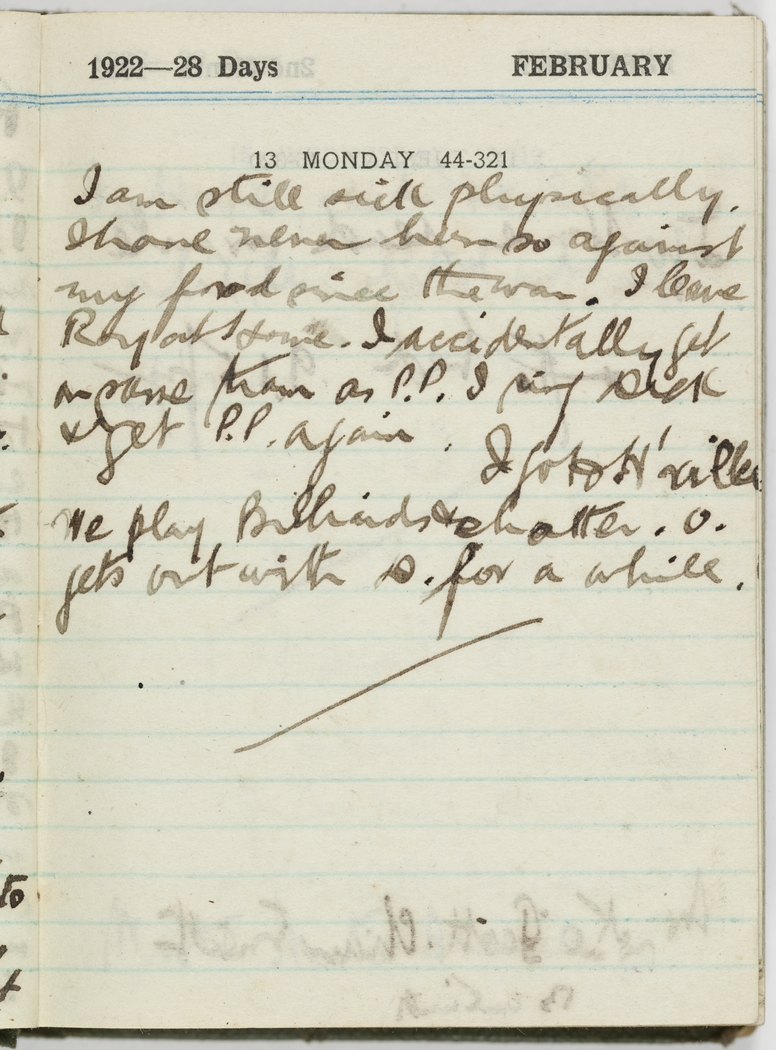 1922—28 Days FEBRUARY
13 MONDAY 44-321
I am still sick physically.
I have never been so against
my food since the war. I leave
Roy at home. I accidentally get
on same tram as P.P. I ring Dick
& get P.P. again.
I go to H'ville
We play Billiards & chatter. O.
gets out with D. for a while.
to